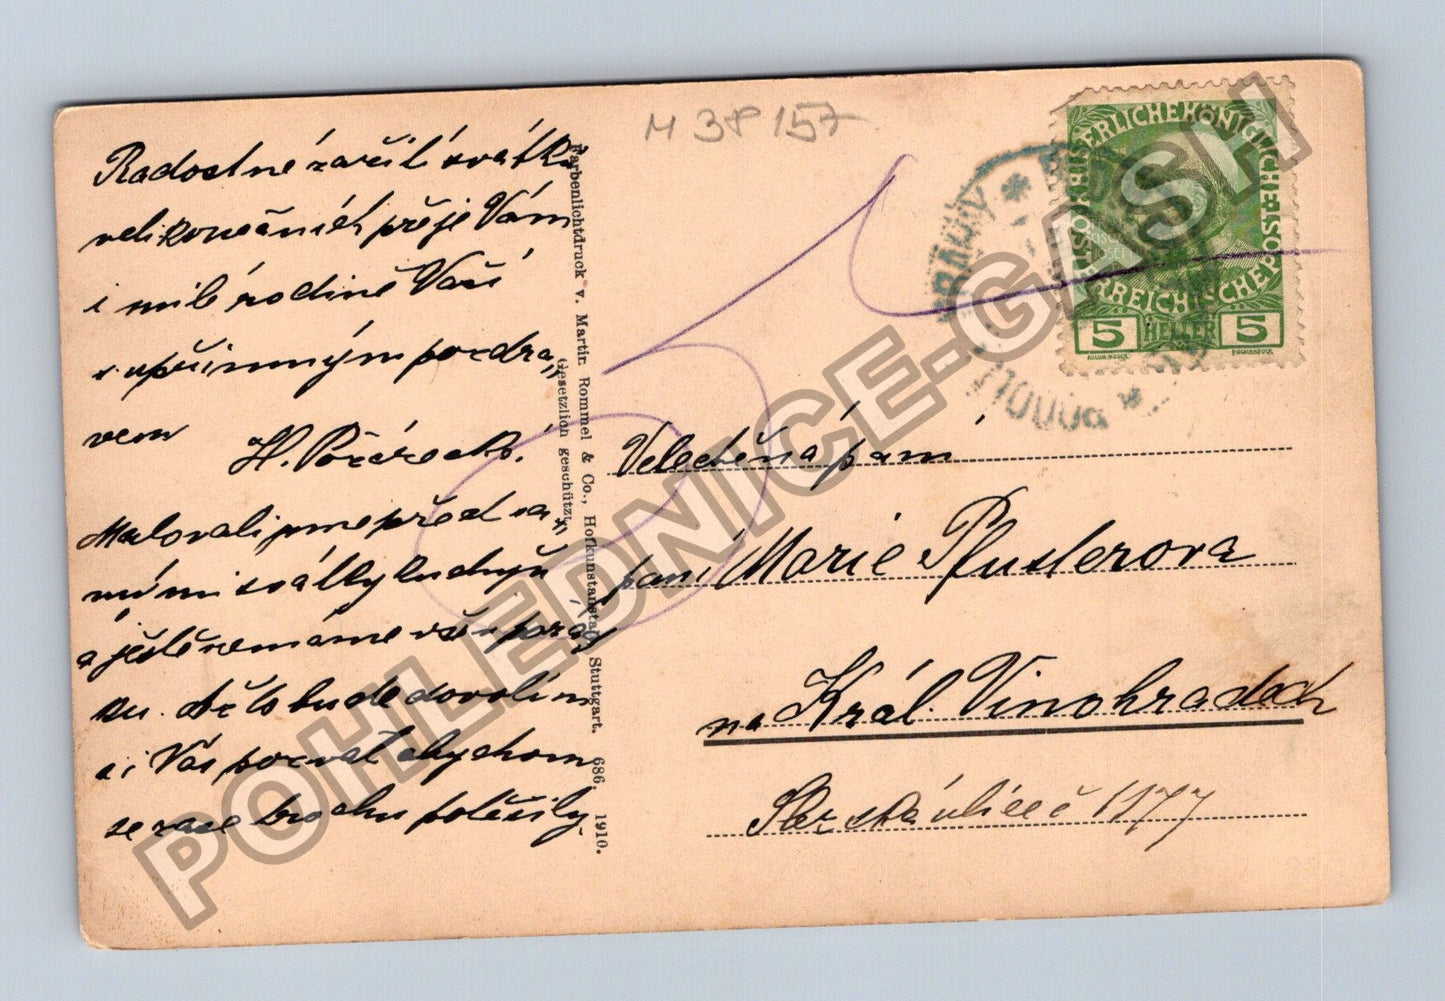 M 38 157
Radostné zažití svátků
velikonočních přeje Vám
i milé rodině Vaší
s upřímným pozdra„
vem H. Požárecká.
Malovali jsme před sa„
mými svátky kuchyň
a ještě nemáme vše v pořád
ku. Až to bude dovolím
si Vás pozvat abychom
se zase trochu potěšily.
Farbenlichtdruck v. Martin Rommel & Co., Hofkunstanstalt Stuttgart. 686. 1910.
Gesetzlich geschützt.
KAISERLICHE KÖNIGLICHE
ÖSTERREICHISCHE POST
5 HELLER 5
Velectěná paní
paní Marie Pfusterova
na Král. Vinohradach
ulice č 1177
POHLEDNICE-GASH